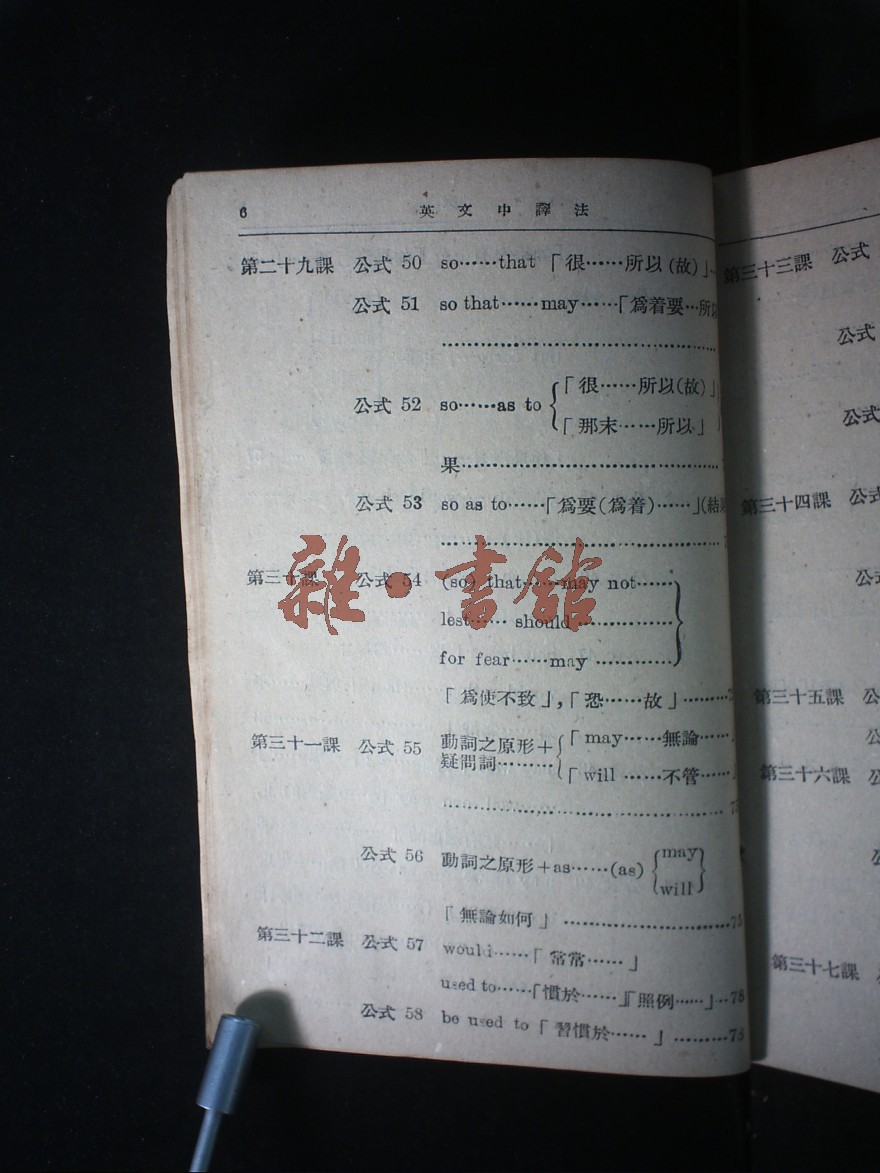 6 英文中譯法
第二十九課 公式 50 so……that「很……所以(故)」…
公式 51 so that……may……「爲着要…所以
………………………………
公式 52 so……as to {「很……所以(故)」
「那末……所以」
果………………………………
公式 53 so as to……「爲要(爲着)……」(結果
………………………………
第三十課 公式 54 (so) that……may not……
lest…… should ……………
for fear……may …………
「爲使不致」,「恐……故」………
第三十一課 公式 55 動詞之原形+ {「may……無論……
疑問詞……… 「will ……不管……
……………………………… 7
公式 56 動詞之原形+as……(as) {may
will}
「無論如何」 ………………75
第三十二課 公式 57 would……「常常……」
used to……「慣於……」「照例……」…78
公式 58 be used to「習慣於……」………78
雜·書館
第三十三課 公式
公式
公式
第三十四課 公式
公式
第三十五課 公
公
第三十六課 公
公
第三十七課